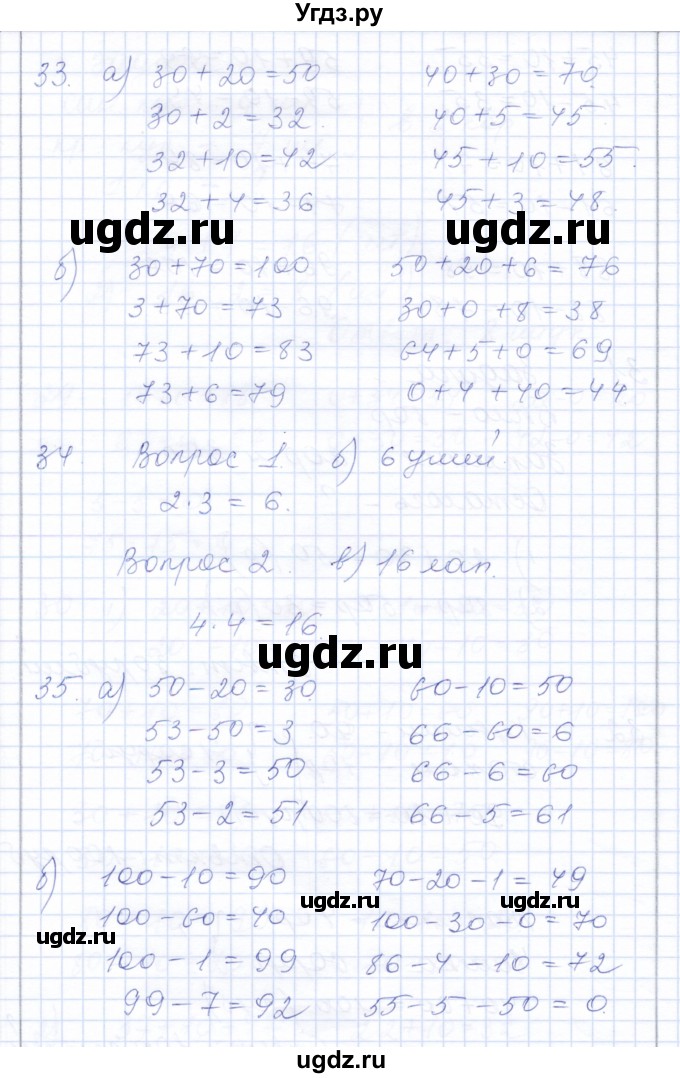 Угдз.ру
33. а) 30+20=50 40+30=70.
30+2=32. 40+5=45
32+10=42 45+10=55.
32+4=36 45+3=48.
ugdz.ru ugdz.ru
б) 30+70=100 50+20+6=76
3+70=73 30+0+8=38
73+10=83 64+5+0=69
73+6=79 0+4+40=44.
34 Вопрос 1. б) 6 ушей.
2·3=6.
Вопрос 2. в) 16 лап.
4·4=16.
ugdz.ru
35. а) 50-20=30. 60-10=50
53-50=3 66-60=6
53-3=50 66-6=60
53-2=51 66-5=61
б) 100-10=90 70-20-1=49
ugdz.ru ugdz.ru
100-60=40 100-30-0=70
ugdz.ru
100-1=99 86-4-10=72
99-7=92 55-5-50=0.
ugdz.ru